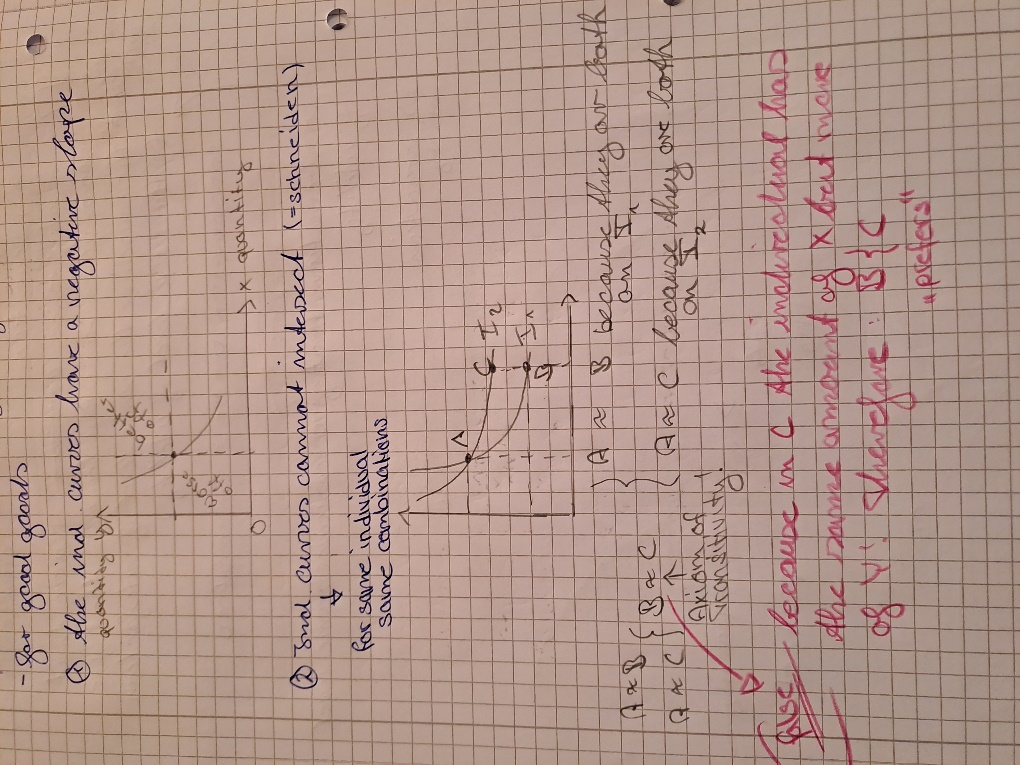 - for good goods
① the ind. curves have a negative slope
quantity Y
O
> x quantity
② Ind. curves cannot intersect (=schneiden)
for same individual
same combinations
A
C
I₂
I₁
B
A ≈ B because they are both
on I₁
A ≈ C because they are both
on I₂
A ≈ B
A ≈ C
B ≈ C
Axiom of
transitivity!
false because in C the individual has
the same amount of X but more
of Y! Therefore: B { C
„prefers"